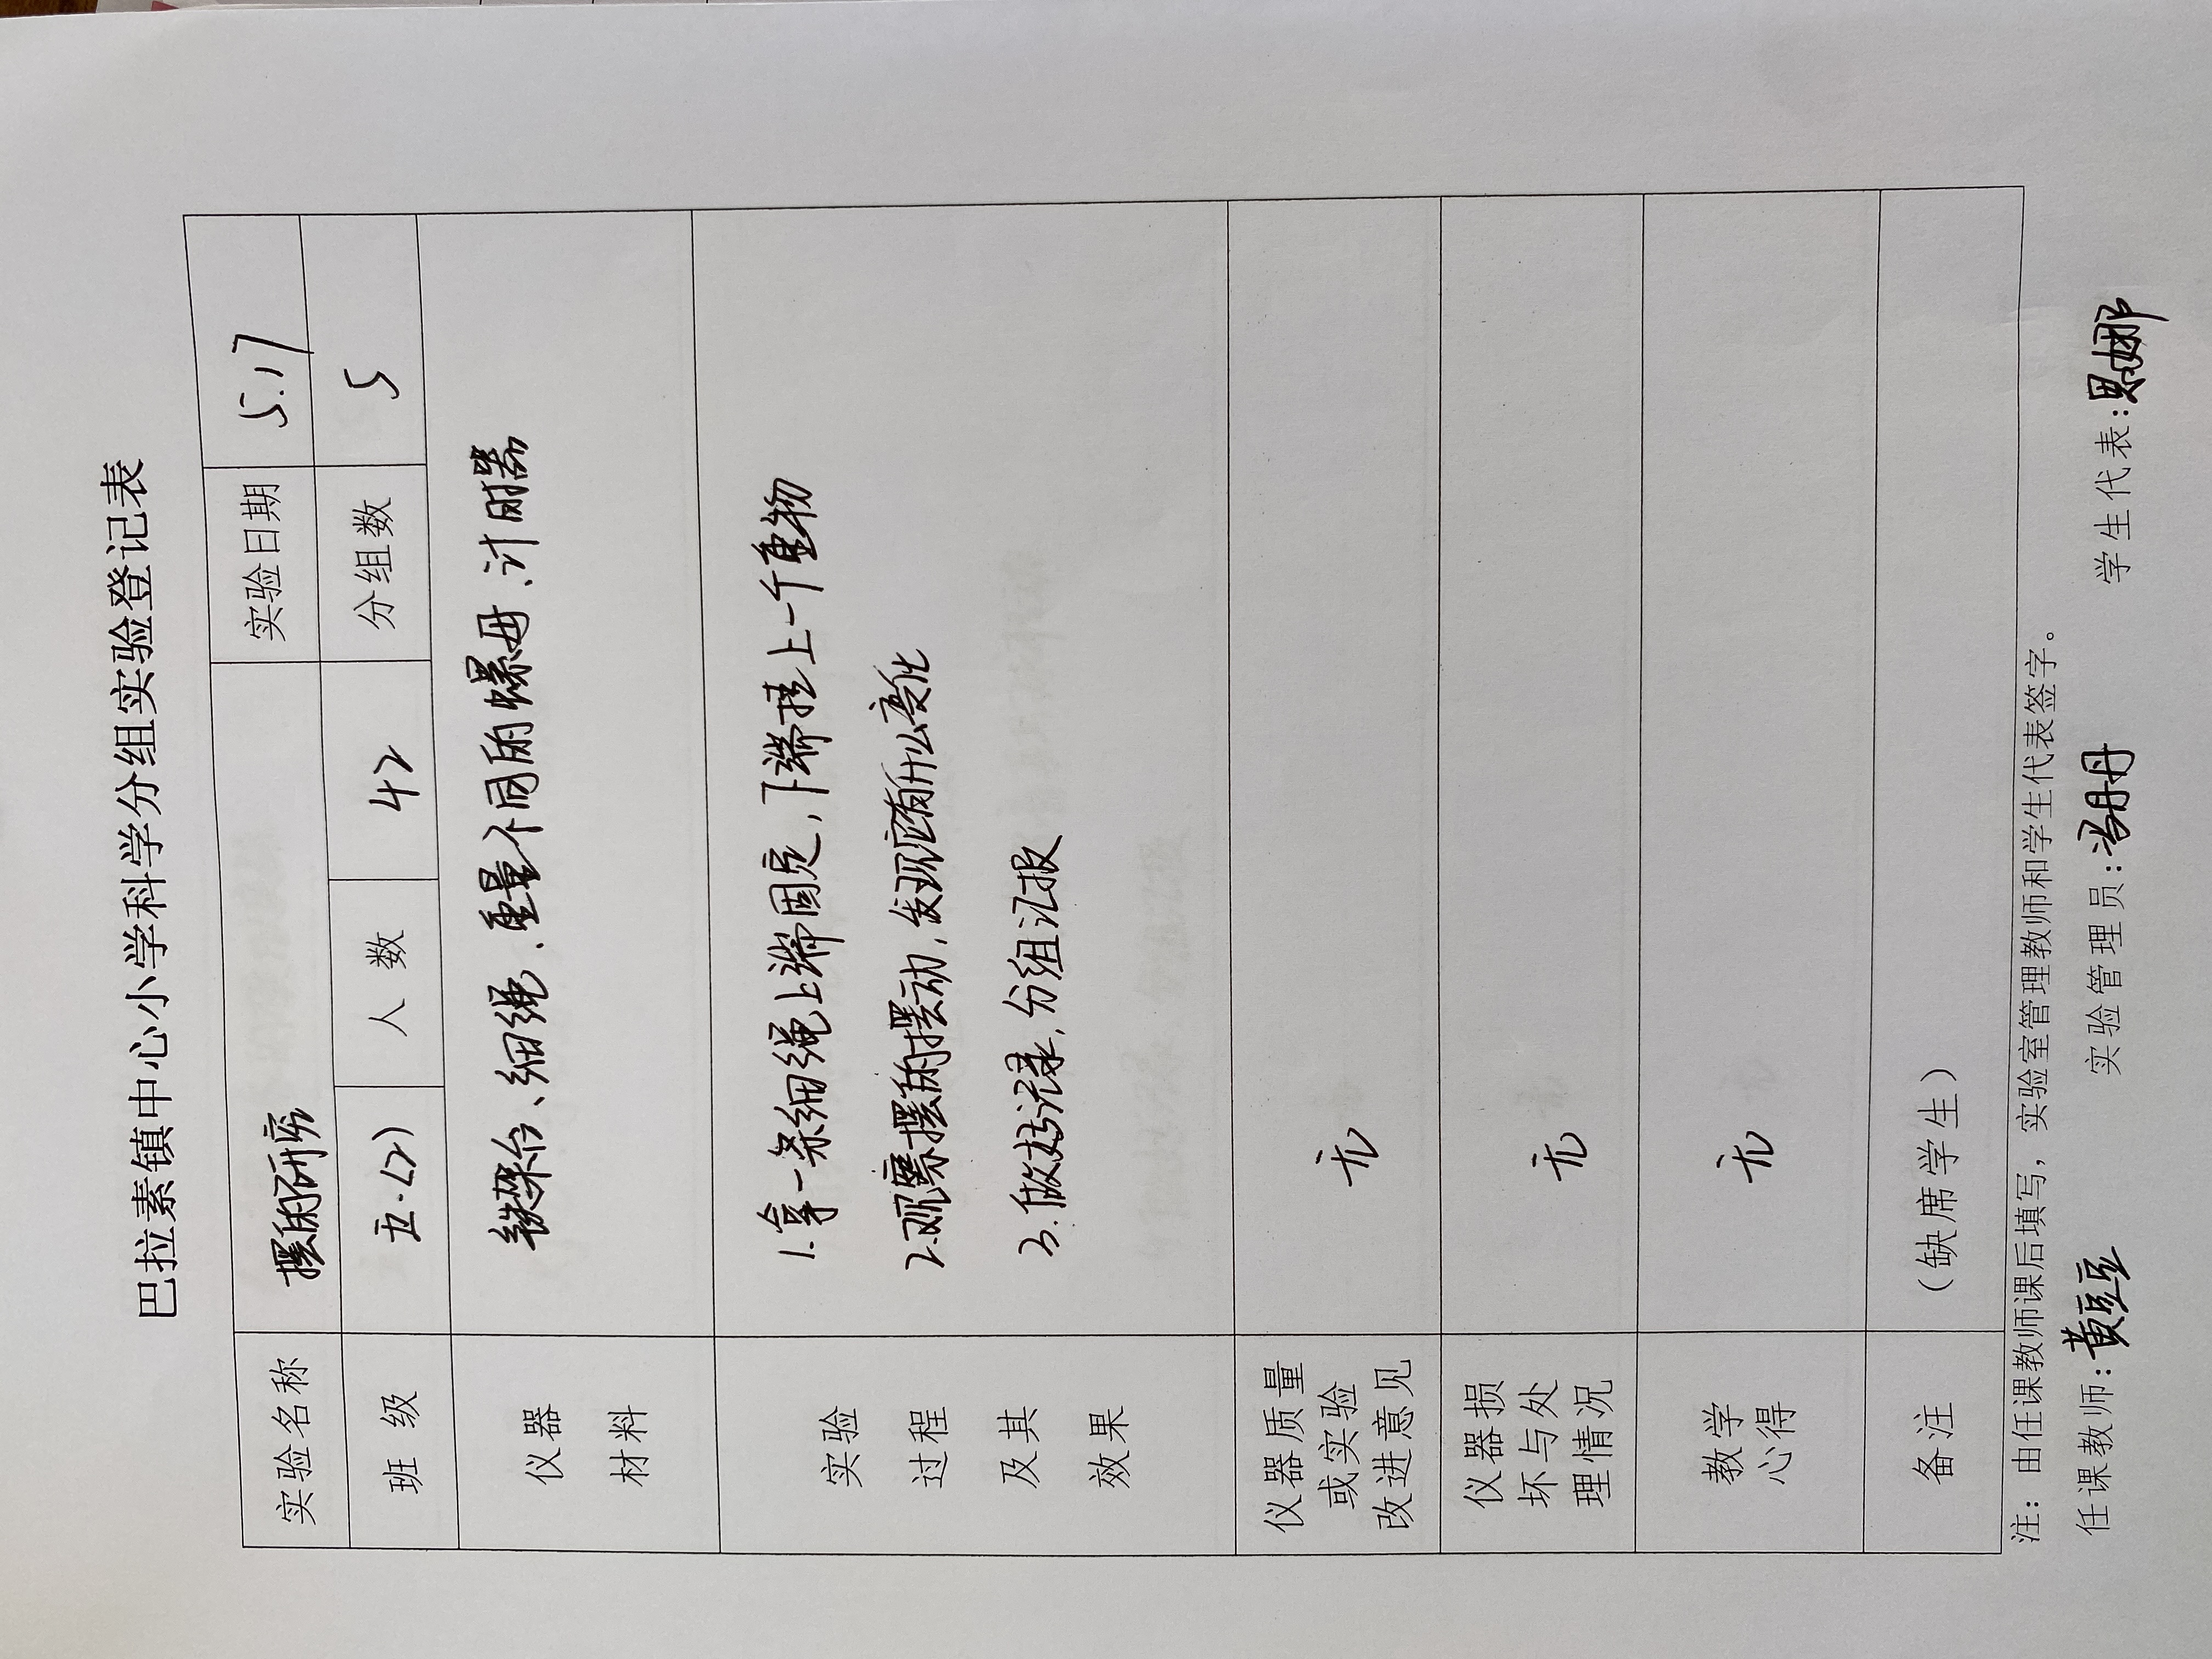 巴拉素镇中心小学科学分组实验登记表
实验名称 摆的研究 实验日期 5.17
班级 五.(2) 人数 42 分组数 5
仪器材料 铁架台、细绳、重量不同的螺母、计时器
实验过程及其效果
1.拿一条细绳上端固定,下端挂上一个重物
2.观察摆的摆动,发现有什么变化
3.做好记录,分组汇报
仪器质量或实验改进意见 无
仪器损坏与处理情况 无
教学心得 无
备注 (缺席学生)
注:由任课教师课后填写,实验室管理教师和学生代表签字。
任课教师:黄豆豆 实验管理员: 学生代表:思娜